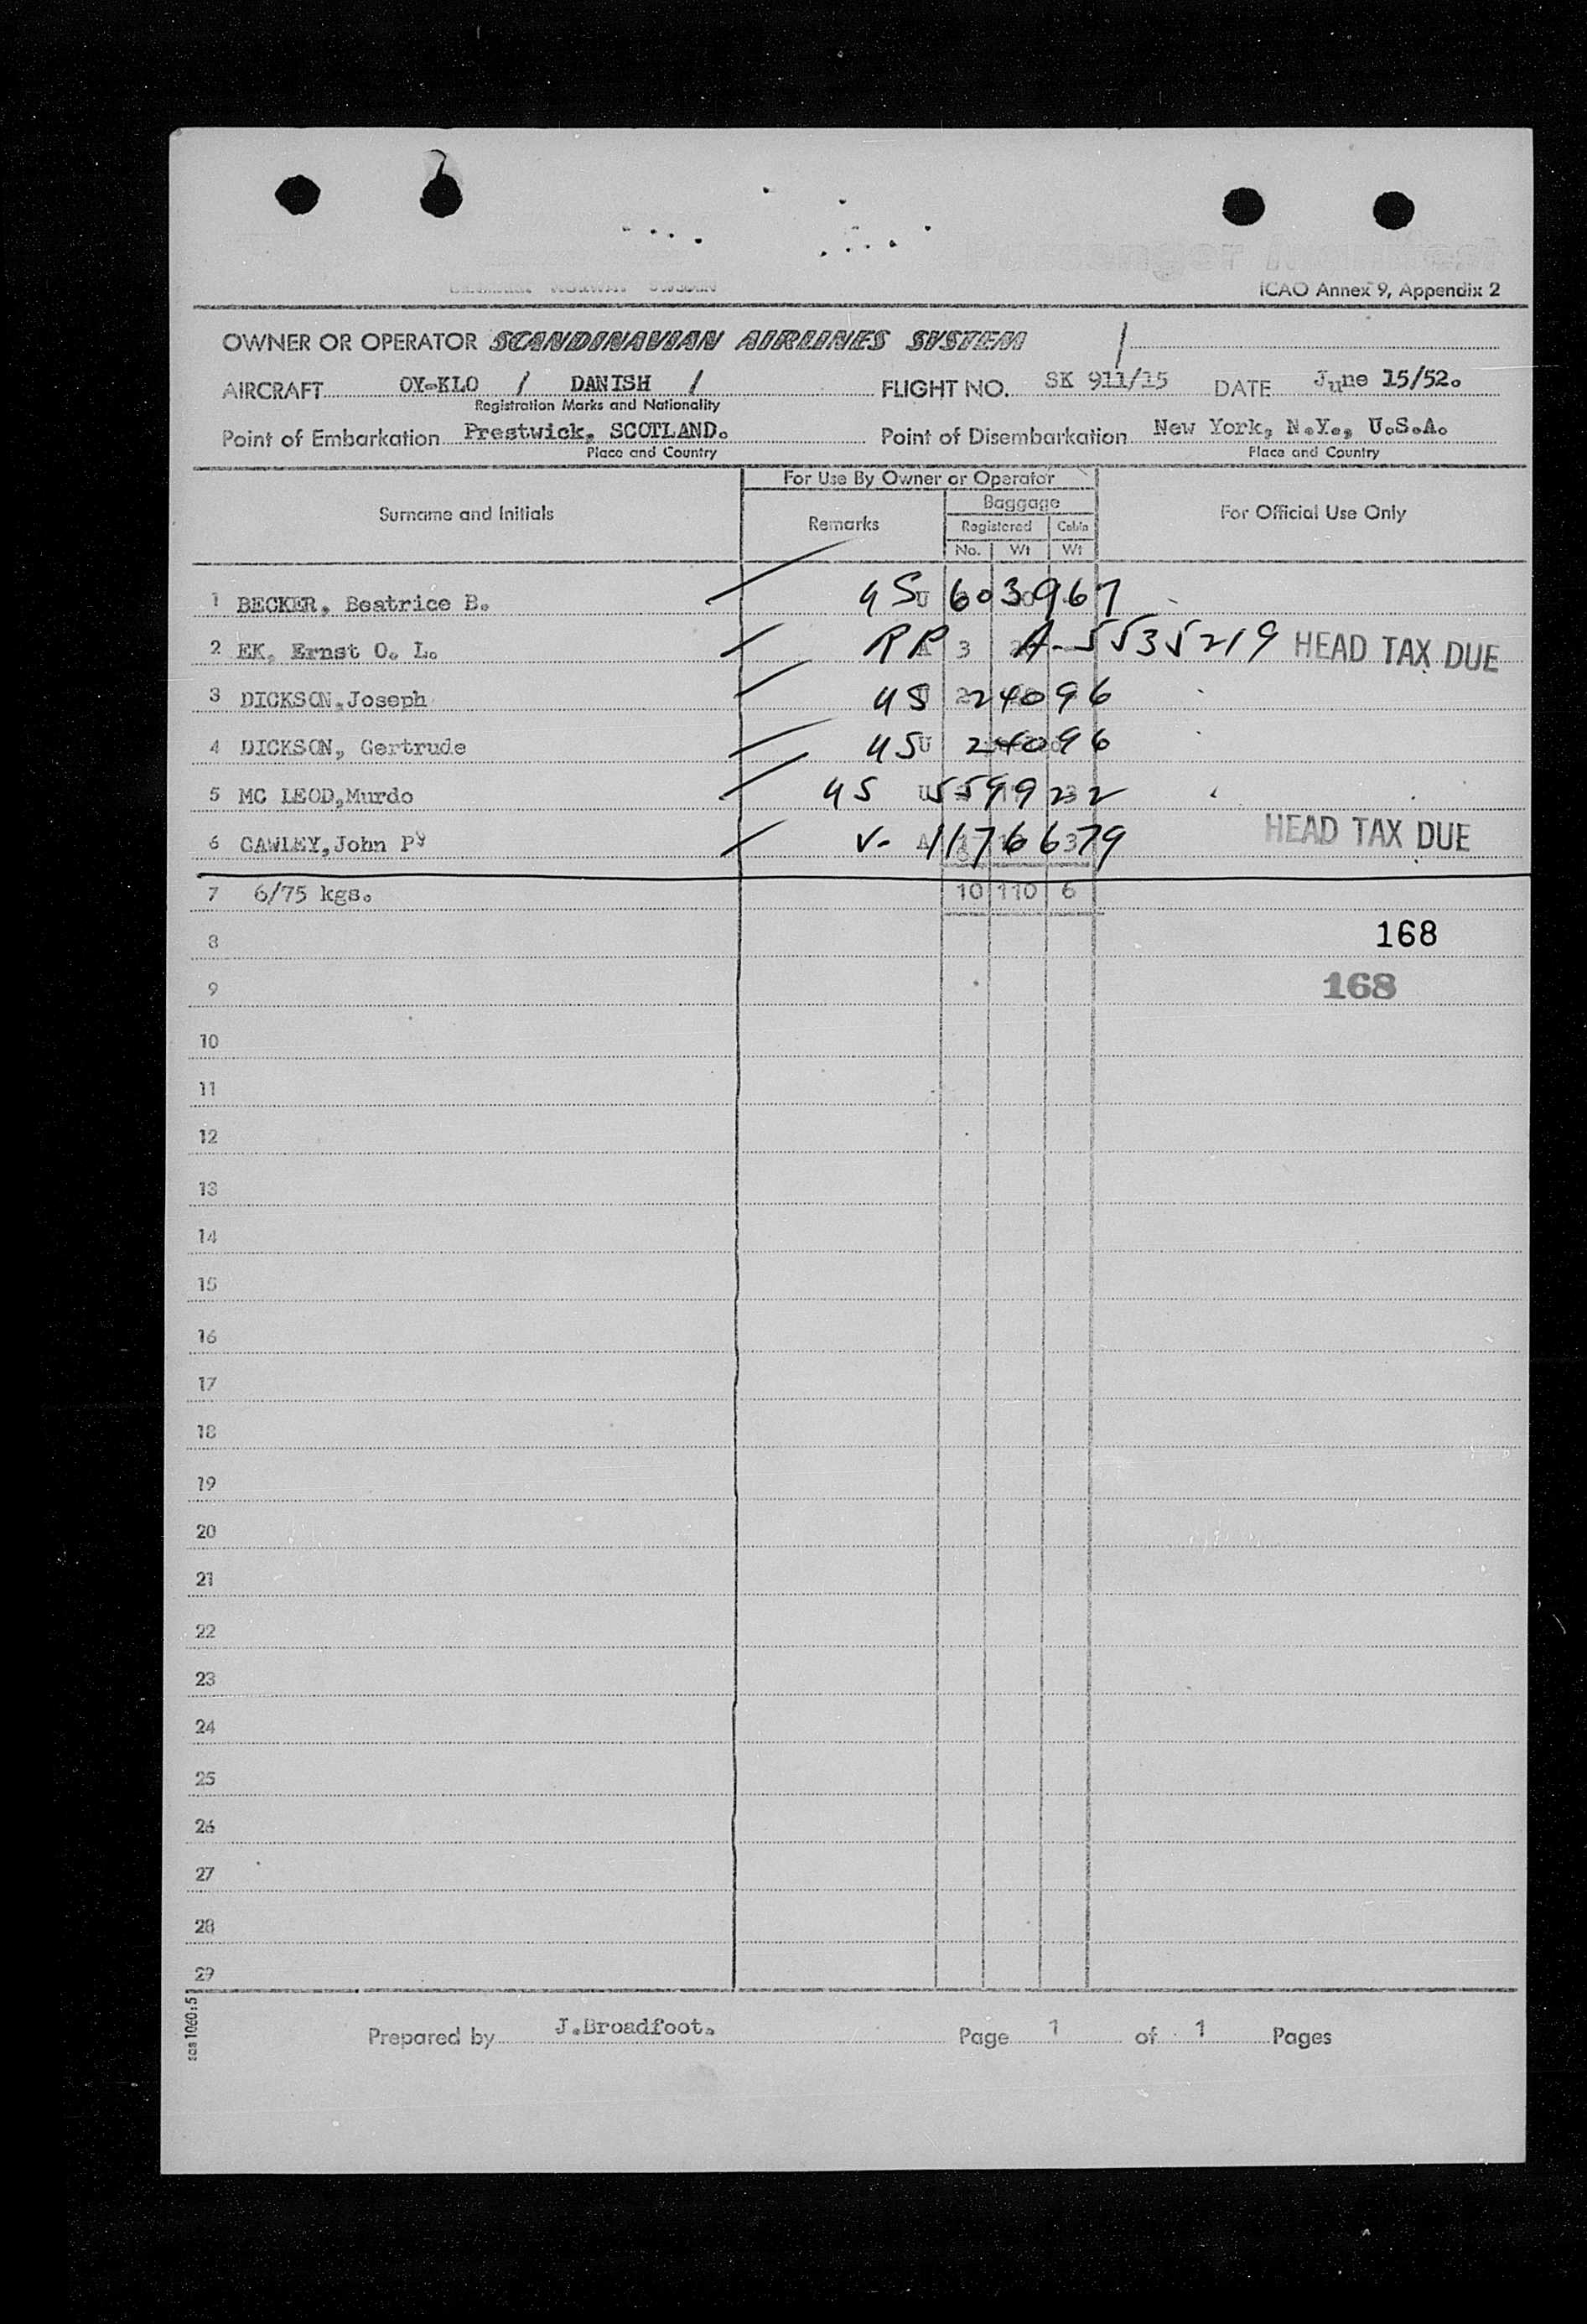 ICAO Annex 9, Appendix 2
OWNER OR OPERATOR SCANDINAVIAN AIRLINES SYSTEM /
AIRCRAFT OY-KLO / DANISH / FLIGHT NO. SK 911/15 DATE June 15/52.
Registration Marks and Nationality
Point of Embarkation Prestwick, SCOTLAND. Point of Disembarkation New York, N.Y., U.S.A.
Place and Country Place and Country
For Use By Owner or Operator
Baggage
Surname and Initials Remarks Registered Cabin For Official Use Only
No. Wt Wt
1 BECKER, Beatrice B. US 603967
2 EK, Ernst O. L. RP 3 A-5535219 HEAD TAX DUE
3 DICKSON,Joseph US 24096
4 DICKSON, Gertrude US U 24096
5 MC LEOD,Murdo US U 559922
6 CAWLEY,John P V- A 1176679 HEAD TAX DUE
7 6/75 kgs. 10 110 6
8 168
9 168
10
11
12
13
14
15
16
17
18
19
20
21
22
23
24
25
26
27
28
29
Prepared by J.Broadfoot. Page 1 of 1 Pages